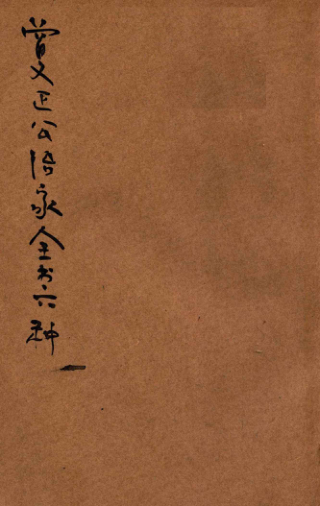 曾文正公治家全书六种 一